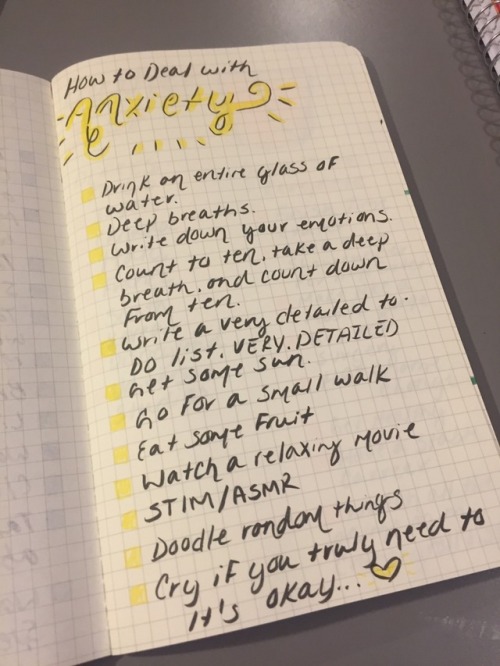 How to Deal with
Anxiety
Drink an entire glass of
water.
Deep breaths.
Write down your emotions.
Count to ten, take a deep
breath, and count down
from ten.
Write a very detailed to-
DO list. VERY. DETAILED
Get some sun.
Go for a small walk
Eat some fruit
Watch a relaxing movie
STIM/ASMR
Doodle random things
Cry if you truly need to
It's okay...